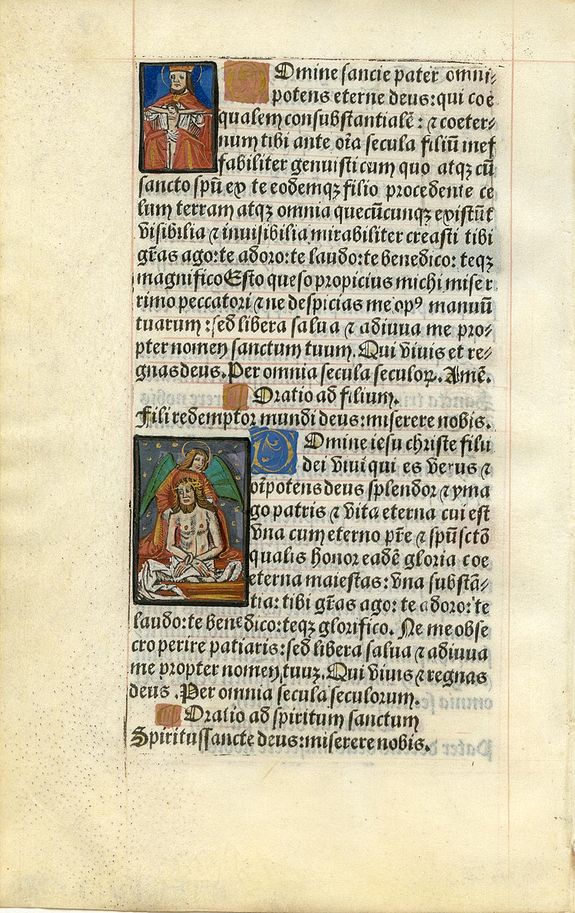 Domine sancte pater omni-
potens eterne deus: qui coe
qualem consubstantialē: ⁊ coeter-
num tibi ante oīa secula filiū inef
fabiliter genuisti cum quo atqꝫ cū
sancto spū ex te eodemqꝫ filio procedente ce
lum terram atqꝫ omnia quecūcunqꝫ existūt
visibilia ⁊ invisibilia mirabiliter creasti tibi
gr̃as ago: te adoro: te laudo: te benedico: teqꝫ
magnifico Esto queso propicius michi miser
rimo peccatori ⁊ ne despicias me opꝰ manuū
tuarum: sed libera salua ⁊ adiuua me pro-
pter nomen sanctum tuum. Qui viuis et re-
gnas deus. Per omnia secula seculoꝝ. Amē.
Oratio ad filium.
Fili redemptor mundi deus: miserere nobis.
Domine iesu christe filu
dei viui qui es verus ⁊
oīpotens deus splendor ⁊ yma
go patris ⁊ vita eterna cui est
vna cum eterno pr̄e ⁊ spūsctō
qualis honor eadē gloria coe
eterna maiestas: vna substā-
tia: tibi gr̃as ago: te adoro: te
laudo: te benedico: teqꝫ glorifico. Ne me obse
cro perire patiaris: sed libera salua ⁊ adiuua
me propter nomen tuuꝫ. Qui viuis ⁊ regnas
deus. Per omnia secula seculorum.
Oratio ad spiritum sanctum
Spiritus sancte deus: miserere nobis.